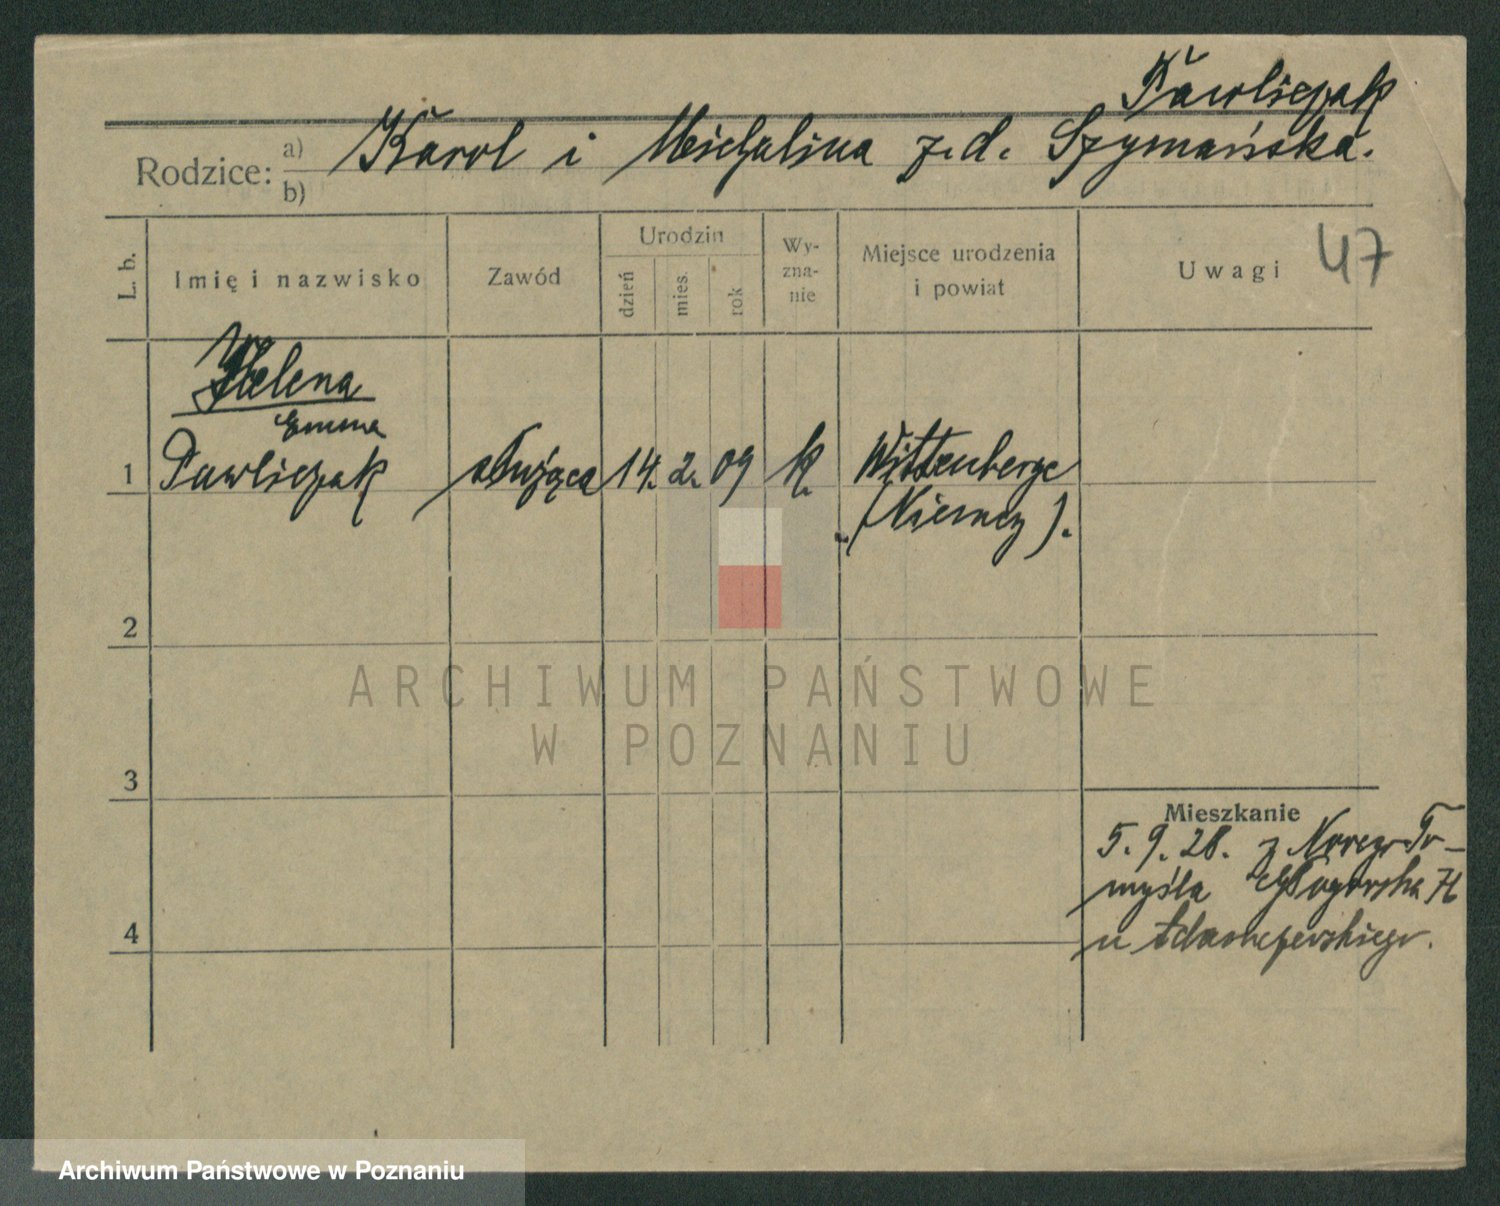 Pawliczak
Rodzice: a) Karol i Michalina z.d. Szymańska.
b)
L. b.
Imię i nazwisko
Zawód
Urodzin
dzień
mies.
rok
Wy-
zna-
nie
Miejsce urodzenia
i powiat
Uwagi
47
Helena
Emma
1 Pawliczak służąca 14. 2. 09 k. Wittenberge
(Niemcy).
2
3
4
ARCHIWUM PAŃSTWOWE
W POZNANIU
Mieszkanie
5. 9. 28. z Nowego To-
myśla Głogowska
u Adamczewskiego.
Archiwum Państwowe w Poznaniu